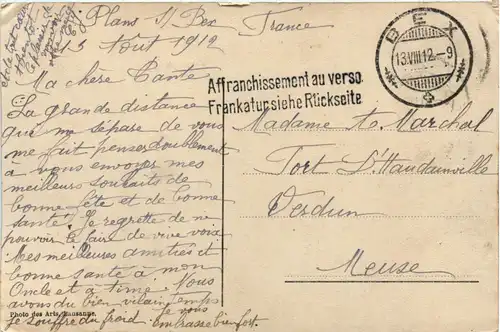 Plans s/Bex
France
13 Août 1912
BEX
13.VIII.12.-9
Affranchissement au verso.
Frankatur siehe Rückseite
Ma chère Tante
La grande distance
que me sépare de vous
me fait penser doublement
à vous envoyer mes
meilleurs souhaits de
bonne fête et de bonne
santé. Je regrette de ne
pouvoir le faire de vive voix
Mes meilleures amitiés et
bonne santé à mon
Oncle et à Nous
avons du bien vilain temps
je souffre du froid. Je vous
embrasse bien fort.
Madame Marchal
Fort d'Haudainville
Verdun
Meuse
Photo des Arts, Lausanne.